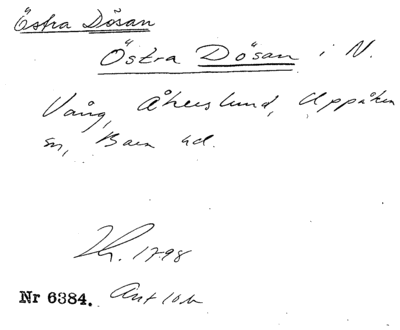 Östra Dösan
Östra Dösan i N.
Vång, Åkerslund, Uppåkra
sn, Bara hd.
1798
Nr 6384.